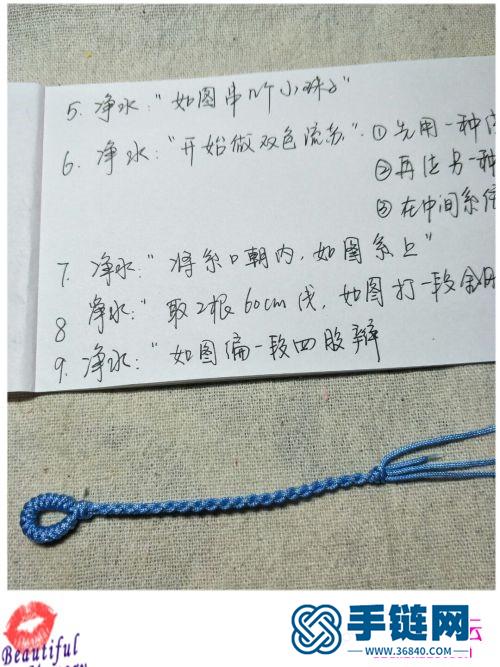 5. 净水:"如图串几个小珠子"
6. 净水:"开始做双色流苏". ①先用一种
②再法另一种
③在中间系住
7. 净水:"将系口朝内,如图系上"
8 净水:"取2根60cm线,如图打一段金刚
9. 净水:"如图编一段四股辫
手链网
www.36840.com
Beautiful